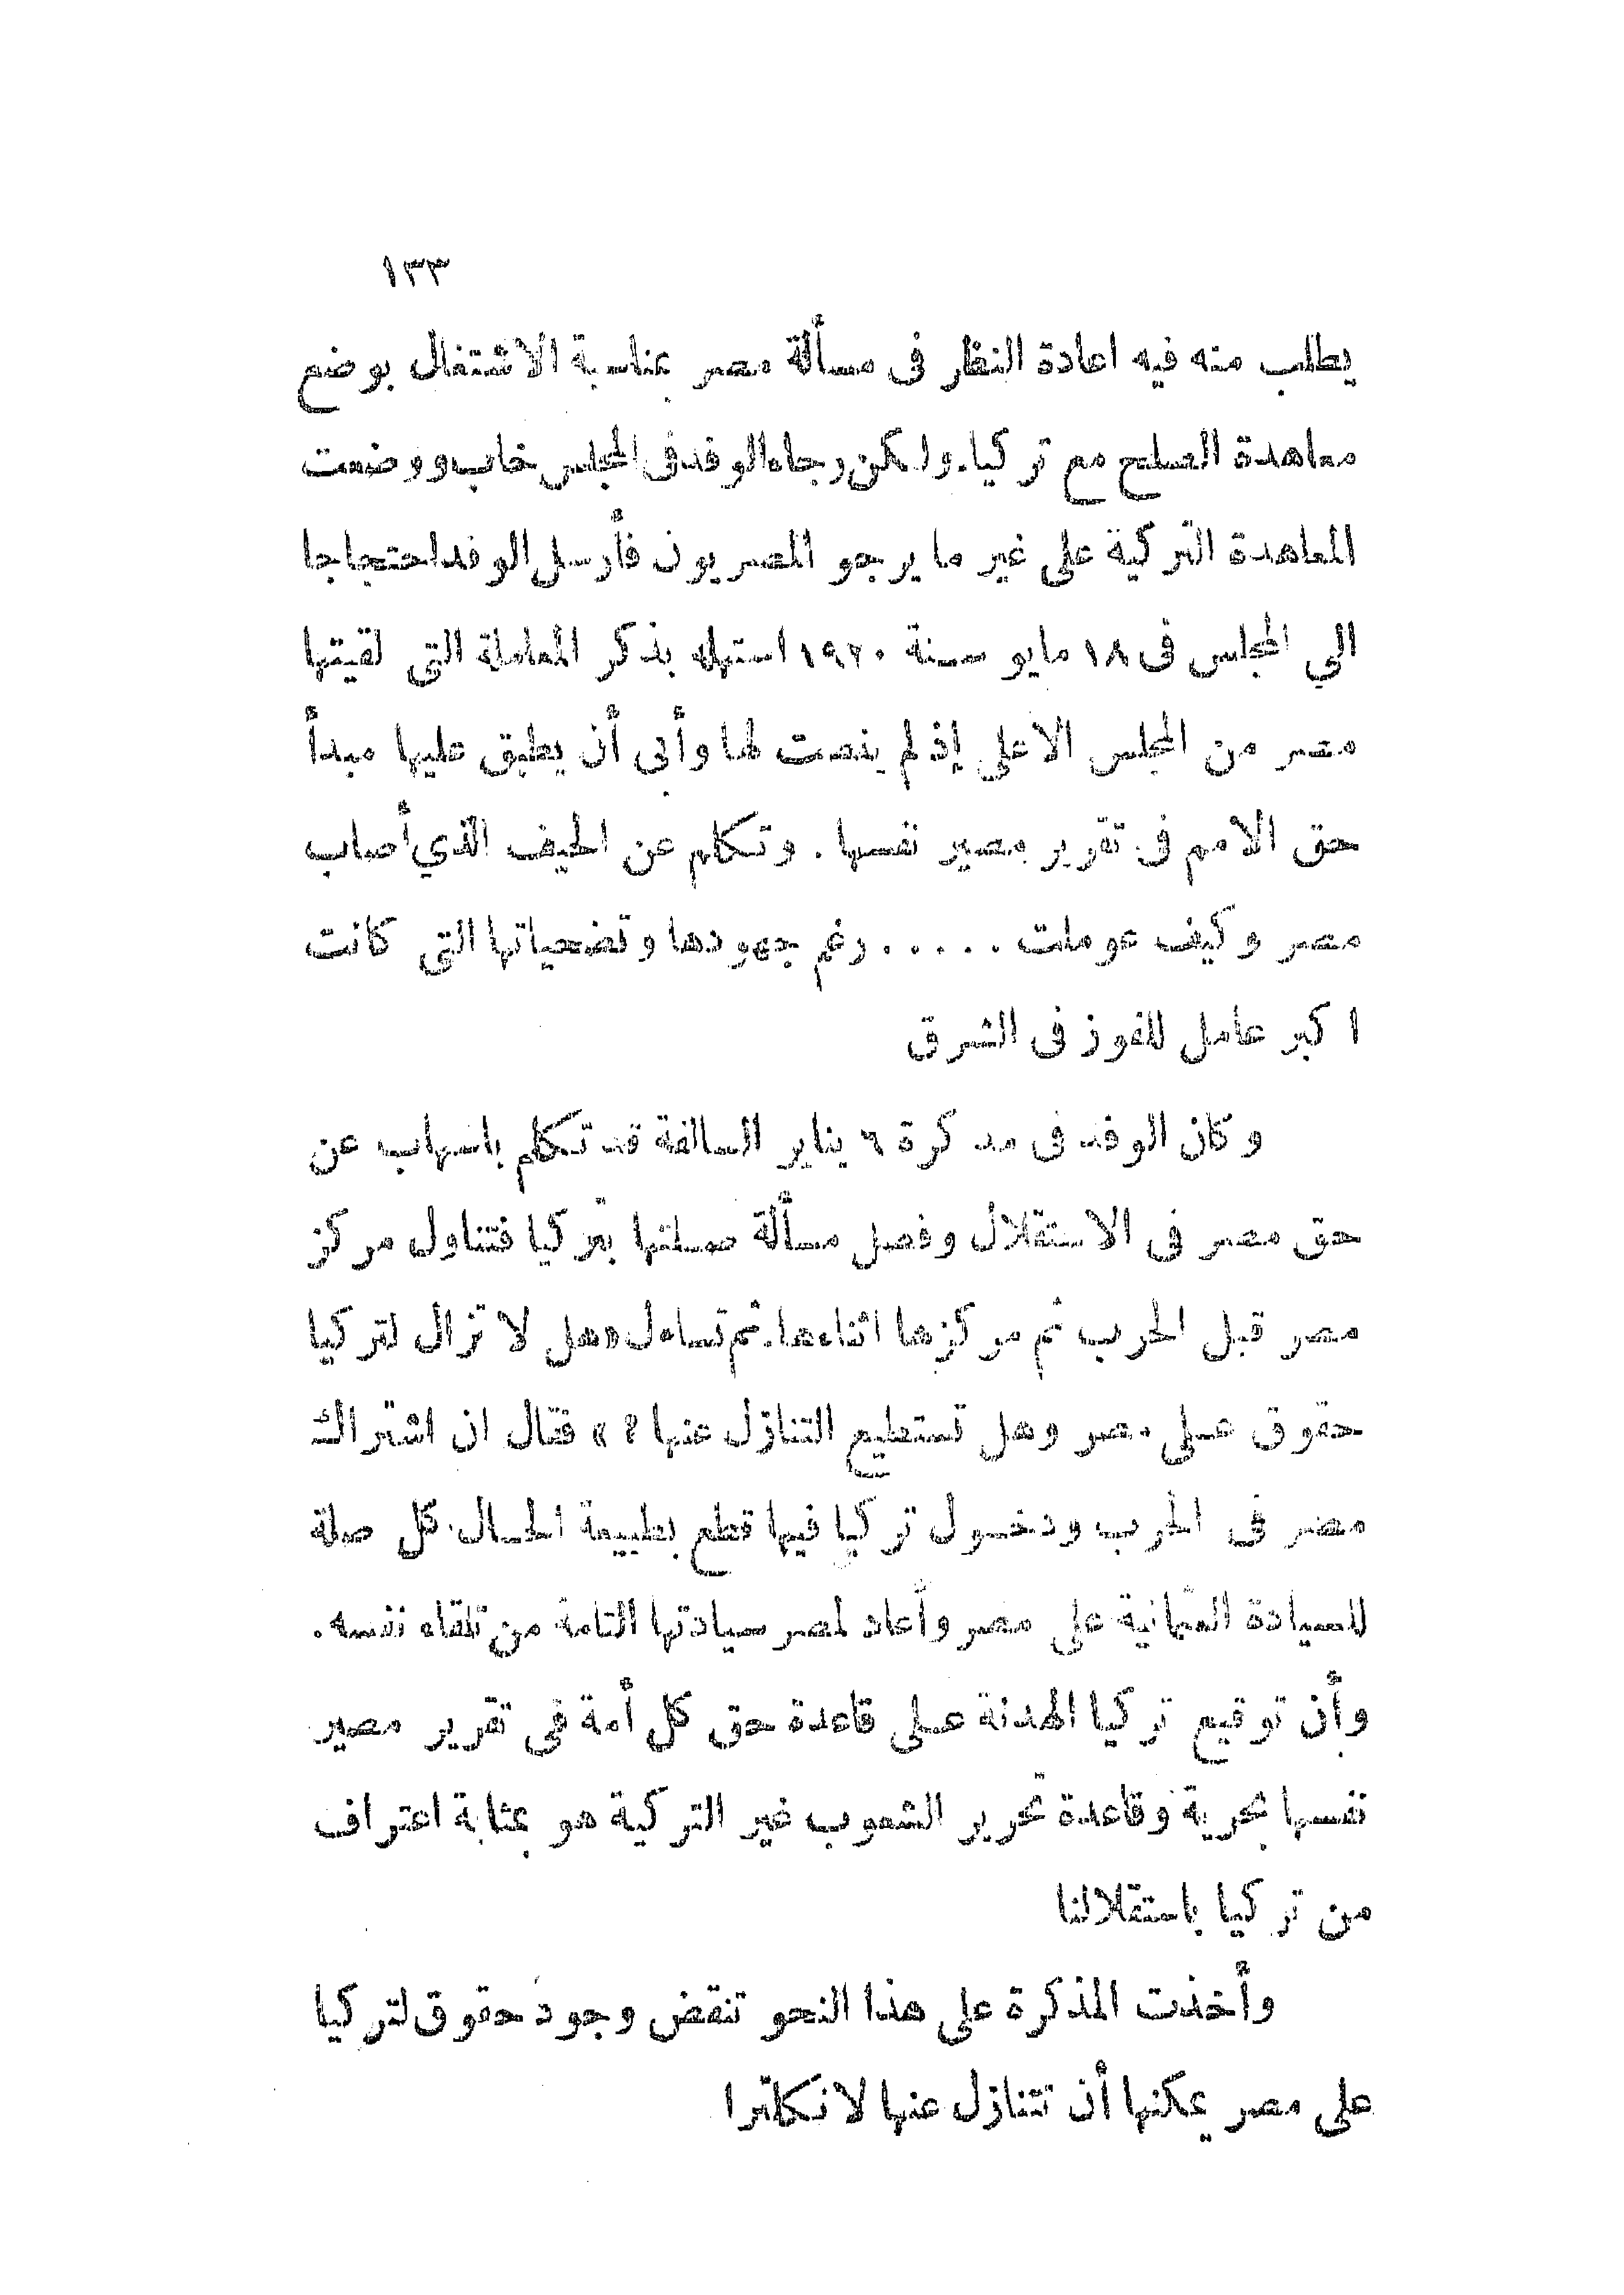 ١٣٣
يطلب منه فيه اعادة النظر فى مسألة مصر بمناسبة الاشتغال بوضع
معاهدة الصلح مع تركيا. ولكن رجاء الوفد فى المجلس خاب ووضعت
المعاهدة التركية على غير ما يرجو المصريون فأرسل الوفد احتجاجا
الي المجلس فى ١٨ مايو سنة ١٩٢٠ استهله بذكر المعاملة التى لقيتها
مصر من المجلس الاعلى إذ لم ينصت لها وأبى أن يطبق عليها مبدأ
حق الامم فى تقرير مصير نفسها . وتكلم عن الحيف الذي أصاب
مصر وكيف عوملت . . . . . رغم جهودها وتضحياتها التى كانت
اكبر عامل للفوز فى الشرق
وكان الوفد فى مذكرة ٦ يناير السالفة قد تكلم باسهاب عن
حق مصر فى الاستقلال وفصل مسألة صلتها بتركيا فتناول مركز
مصر قبل الحرب ثم مركزها اثناءها. ثم تساءل «هل لا تزال لتركيا
حقوق على مصر وهل تستطيع التنازل عنها ؟ » فقال ان اشتراك
مصر فى الحرب ودخول تركيا فيها قطع بطبيعة الحال كل صلة
للسيادة العثمانية على مصر وأعاد لمصر سيادتها التامة من تلقاء نفسه .
وأن توقيع تركيا الهدنة على قاعدة حق كل أمة فى تقرير مصير
نفسها بحرية وقاعدة تحرير الشعوب غير التركية هو بمثابة اعتراف
من تركيا باستقلالنا
وأخذت المذكرة على هذا النحو تنقض وجود حقوق لتركيا
على مصر يمكنها أن تتنازل عنها لانكلترا